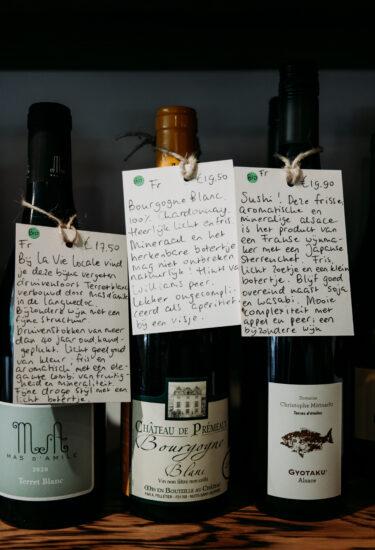 Bio
Fr
€17,50
Bij La Vie Locale vind
je deze bijna vergeten
druivensoort Terret Blanc
verbouwd door mas d'amile
in de languedoc.
Bijzondere wijn met een
fijne structuur
druivenstokken van meer
dan 40 jaar oud, hand-
geplukt. licht goed gul
van kleur, fris en
aromatisch met een ele-
gante combi van fruitig-
heid en mineraliteit.
Fijne droge stijl met een
licht botertje.
MAS D'AMILE
2020
Terret Blanc
Bio
Fr
€19,50
Bourgogne Blanc.
100% Chardonnay.
Heerlijk licht en fris.
Mineraal en het
herkenbare botertje
mag niet ontbreken
natuurlijk! Hint van
williams peer.
Lekker ongecompli-
ceerd als aperitief
bij een visje.
CHÂTEAU DE PRÉMEAUX
Bourgogne
Blanc
Vin non filtré non collé
MIS EN BOUTEILLE AU CHÂTEAU
Bio
Fr
€19,90
Sushi! Deze frisse,
aromatische en
minerale alsace
is het product van
een Franse wijnma-
ker met een Japanse
Sterrenchef. Fris,
licht zoetje en een klein
botertje. Blijft goed
overeind naast soja
en wasabi. Mooie
complexiteit met
appel en peer: een
bijzondere wijn
Domaine
Christophe Mittnacht
Terres d'étoiles
GYOTAKU
Alsace